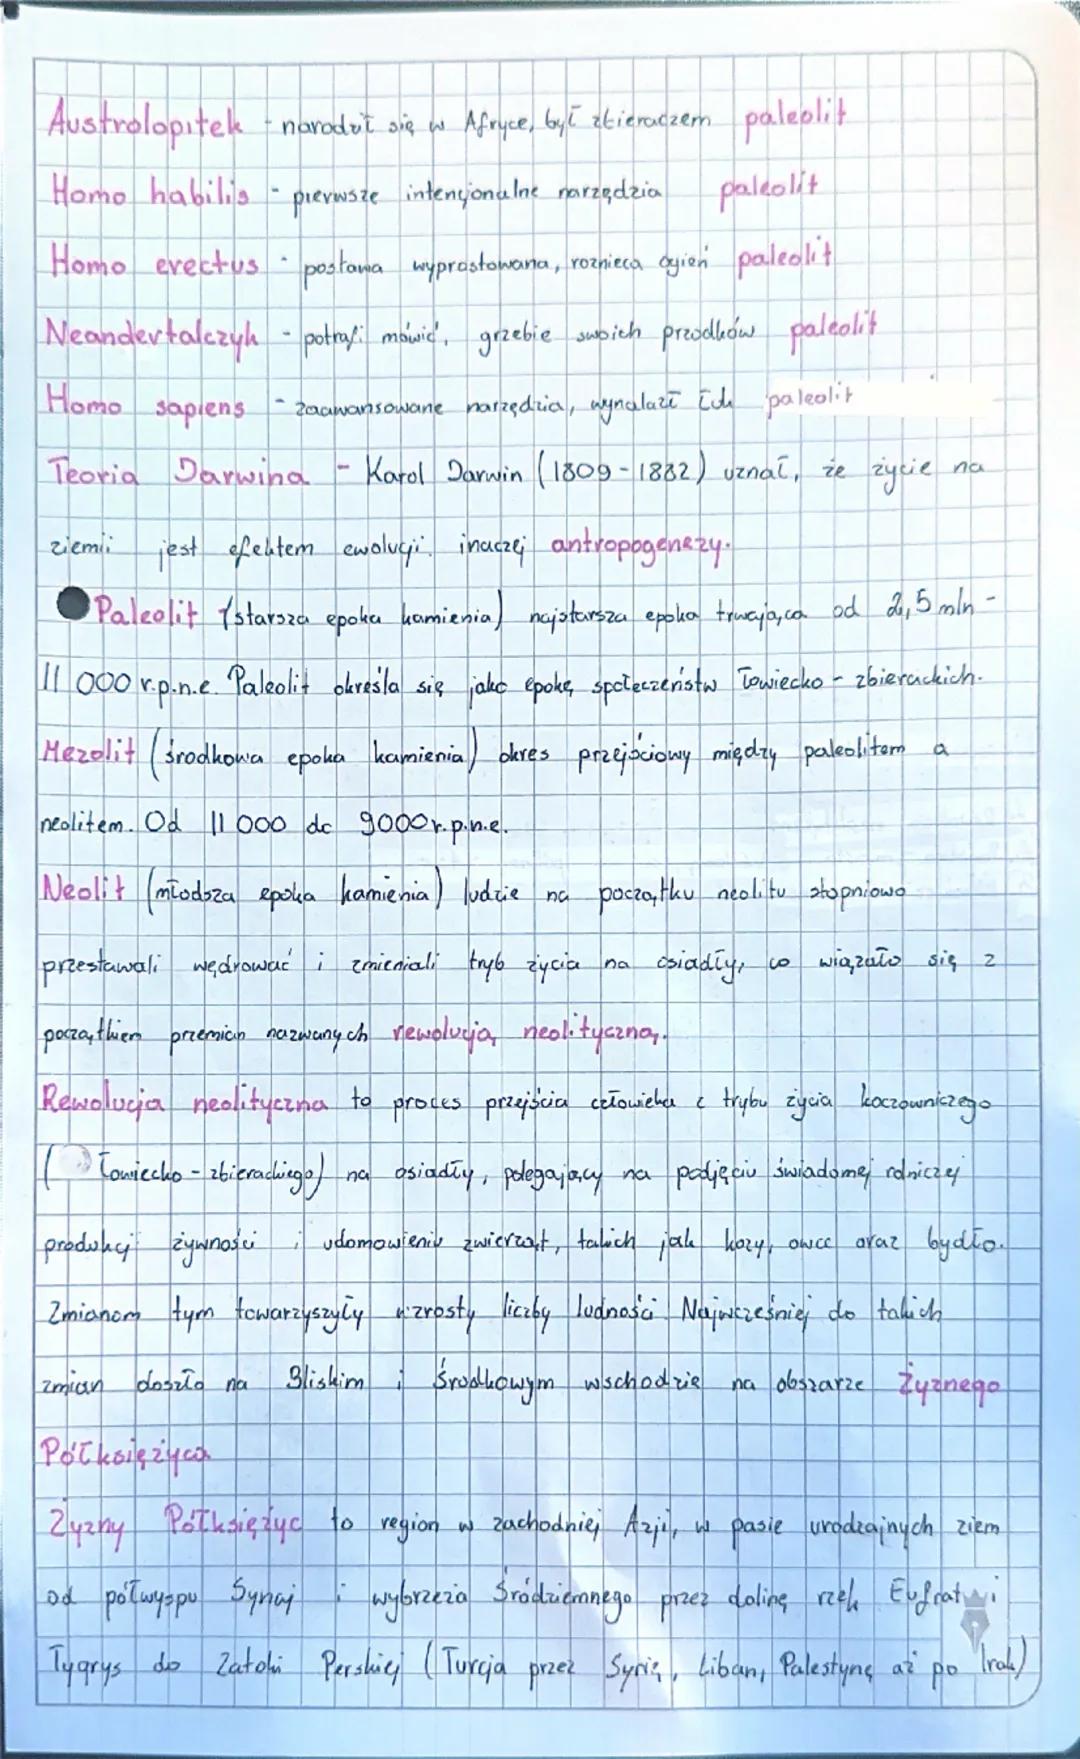 Australopitek - narodził się w Afryce, był zbieraczem paleolit
Homo habilis - pierwsze intencjonalne narzędzia paleolit
Homo erectus - postawa wyprostowana, roznieca ogień paleolit
Neandertalczyk - potrafi mówić, grzebie swoich przodków paleolit
Homo sapiens - zaawansowane narzędzia, wynalazł łuk paleolit
Teoria Darwina - Karol Darwin (1809-1882) uznał, że życie na
ziemii jest efektem ewolucji. inaczej antropogenezy.
Paleolit (starsza epoka kamienia) najstarsza epoka trwająca od 2,5 mln -
11 000 r.p.n.e. Paleolit określa się jako epokę społeczeństw łowiecko - zbierackich.
Mezolit (środkowa epoka kamienia) okres przejściowy między paleolitem a
neolitem. Od 11 000 do 9000 r.p.n.e.
Neolit (młodsza epoka kamienia) ludzie na początku neolitu stopniowo
przestawali wędrować i zmieniali tryb życia na osiadły, co wiązało się z
początkiem przemian nazwanych rewolucją neolityczną.
Rewolucja neolityczna to proces przejścia człowieka z trybu życia koczowniczego
(łowiecko - zbierackiego) na osiadły, polegający na podjęciu świadomej rolniczej
produkcji żywności i udomowieniu zwierząt, takich jak kozy, owce oraz bydło.
Zmianom tym towarzyszyły wzrosty liczby ludności. Najwcześniej do takich
zmian doszło na Bliskim i Środkowym wschodzie na obszarze Żyznego
Półksiężyca
Żyzny Półksiężyc to region w zachodniej Azji, w pasie urodzajnych ziem
od półwyspu Synaj i wybrzeża Śródziemnego przez dolinę rzek Eufrat i
Tygrys do Zatoki Perskiej (Turcja przez Syrię, Liban, Palestynę aż po Irak)